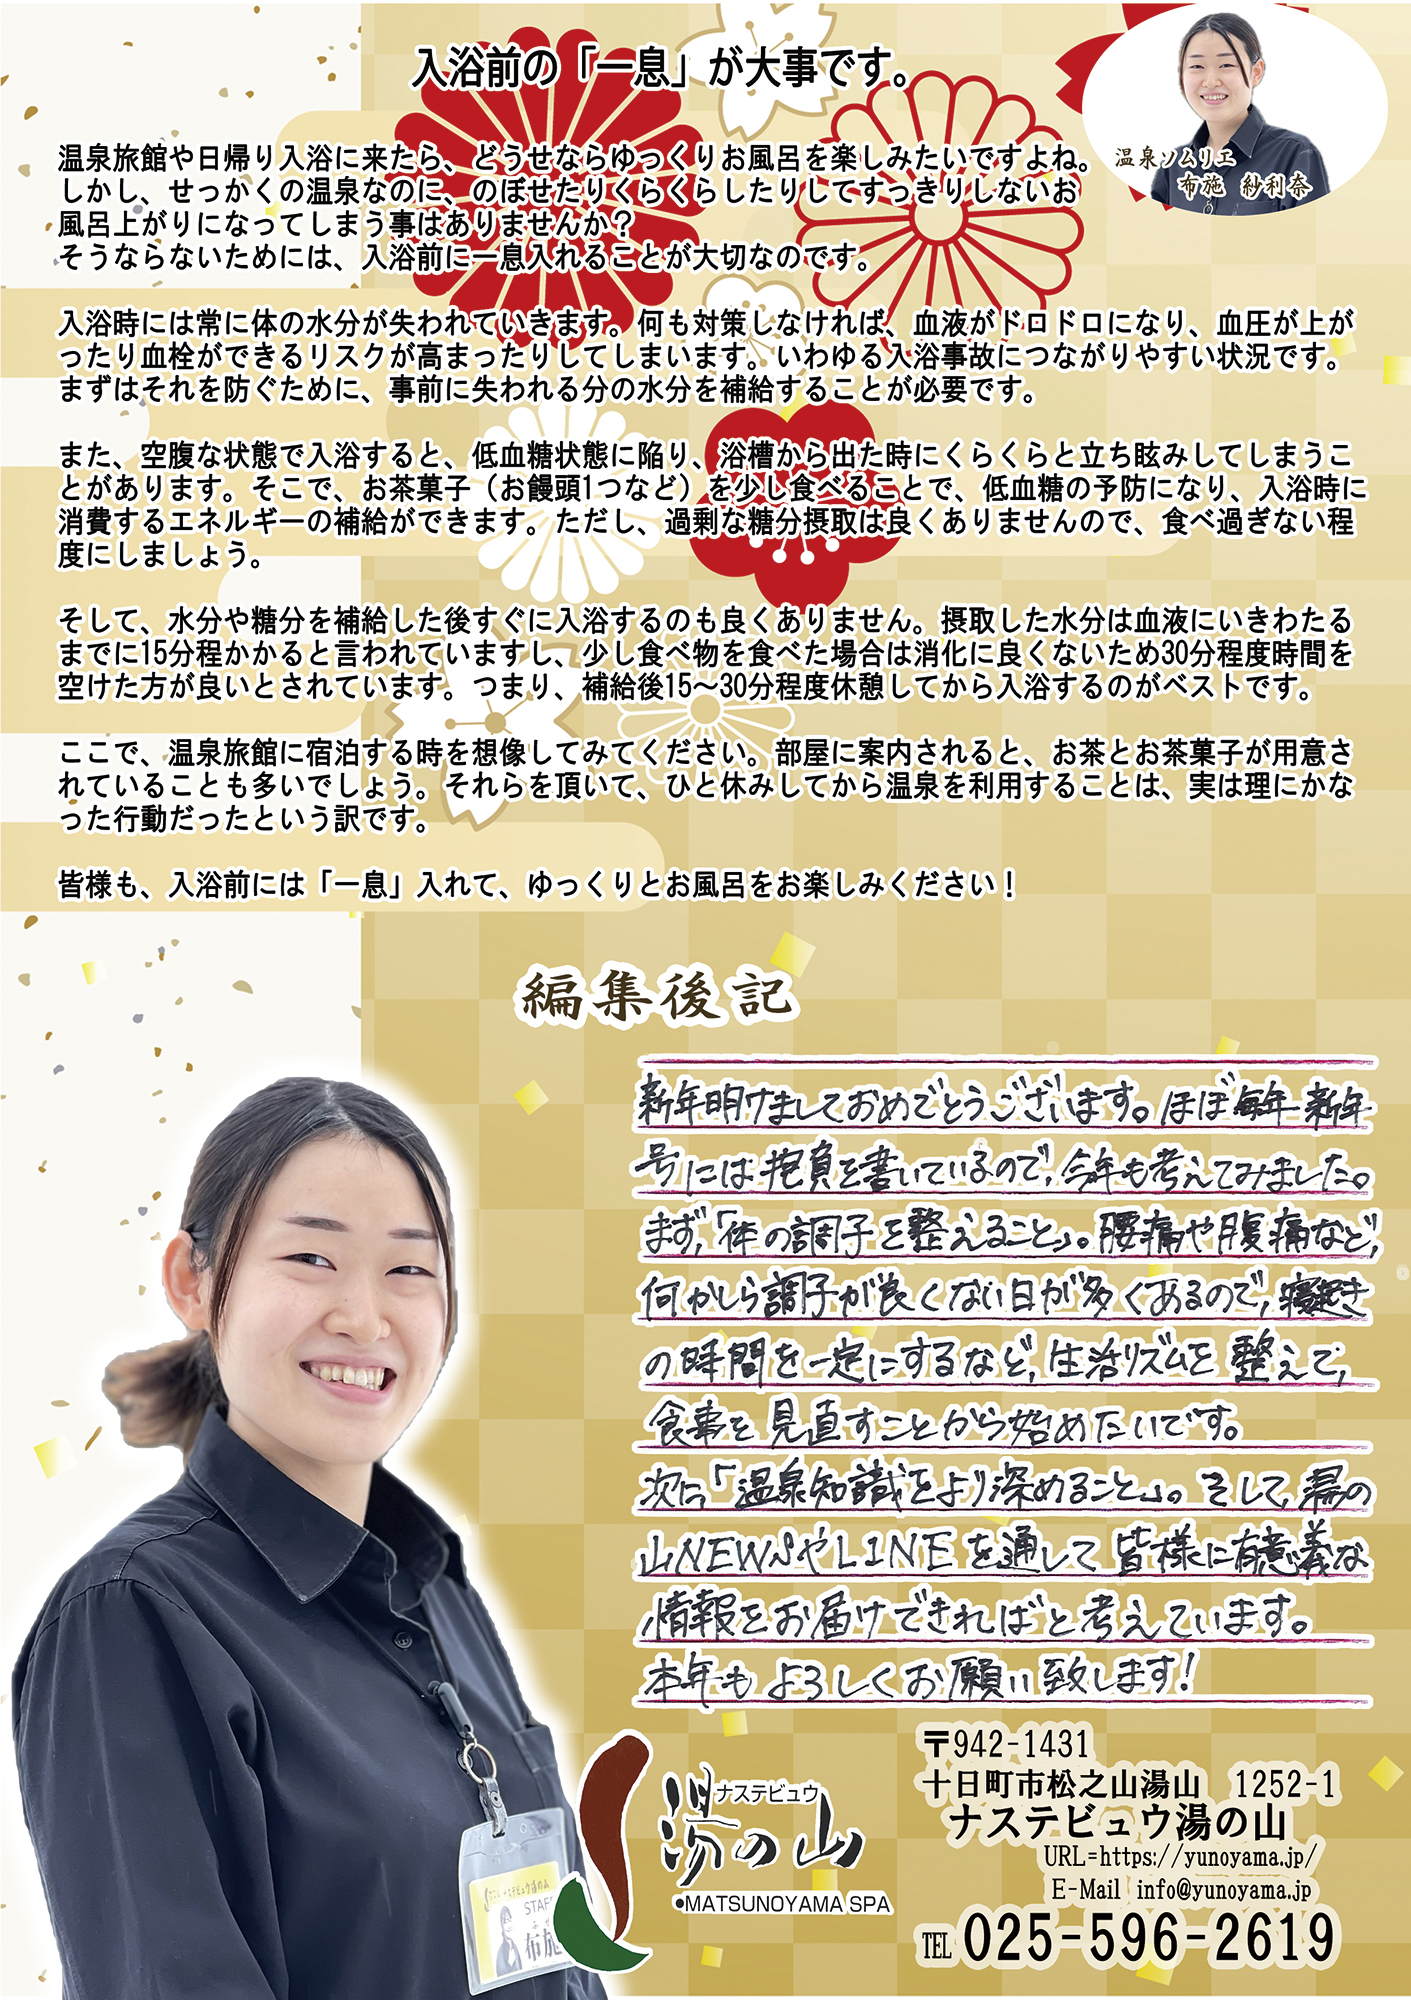 入浴前の「一息」が大事です。
温泉ソムリエ
布施 紗利奈
温泉旅館や日帰り入浴に来たら、どうせならゆっくりお風呂を楽しみたいですよね。
しかし、せっかくの温泉なのに、のぼせたりくらくらしたりしてすっきりしないお
風呂上がりになってしまう事はありませんか？
そうならないためには、入浴前に一息入れることが大切なのです。
入浴時には常に体の水分が失われていきます。何も対策しなければ、血液がドロドロになり、血圧が上が
ったり血栓ができるリスクが高まったりしてしまいます。いわゆる入浴事故につながりやすい状況です。
まずはそれを防ぐために、事前に失われる分の水分を補給することが必要です。
また、空腹な状態で入浴すると、低血糖状態に陥り、浴槽から出た時にくらくらと立ち眩みしてしまうこ
とがあります。そこで、お茶菓子（お饅頭1つなど）を少し食べることで、低血糖の予防になり、入浴時に
消費するエネルギーの補給ができます。ただし、過剰な糖分摂取は良くありませんので、食べ過ぎない程
度にしましょう。
そして、水分や糖分を補給した後すぐに入浴するのも良くありません。摂取した水分は血液にいきわたる
までに15分程かかると言われていますし、少し食べ物を食べた場合は消化に良くないため30分程度時間を
空けた方が良いとされています。つまり、補給後15～30分程度休憩してから入浴するのがベストです。
ここで、温泉旅館に宿泊する時を想像してみてください。部屋に案内されると、お茶とお茶菓子が用意さ
れていることも多いでしょう。それらを頂いて、ひと休みしてから温泉を利用することは、実は理にかな
った行動だったという訳です。
皆様も、入浴前には「一息」入れて、ゆっくりとお風呂をお楽しみください！
編集後記
新年明けましておめでとうございます。ほぼ毎年新年
号には抱負を書いているので、今年も考えてみました。
まず、「体の調子を整えること」。腰痛や腹痛など、
何かしら調子が良くない日が多くあるので、寝起き
の時間を一定にするなど、生活リズムを整えて、
食事を見直すことから始めたいです。
次に「温泉知識をより深めること」。そして、湯の
山NEWSやLINEを通して皆様に有意義な
情報をお届けできればと考えています。
本年もよろしくお願い致します！
ナステビュウ
湯の山
●MATSUNOYAMA SPA
ナステビュウ湯の山
STAF
布施
〒942-1431
十日町市松之山湯山 1252-1
ナステビュウ湯の山
URL=https://yunoyama.jp/
E-Mail info@yunoyama.jp
TEL 025-596-2619